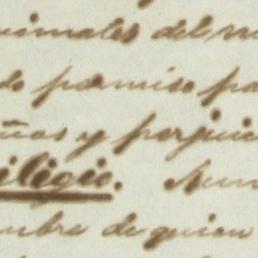 nimales del m
do permiso pa
ños y perjuic
ilegio. Nun
mbre de quien